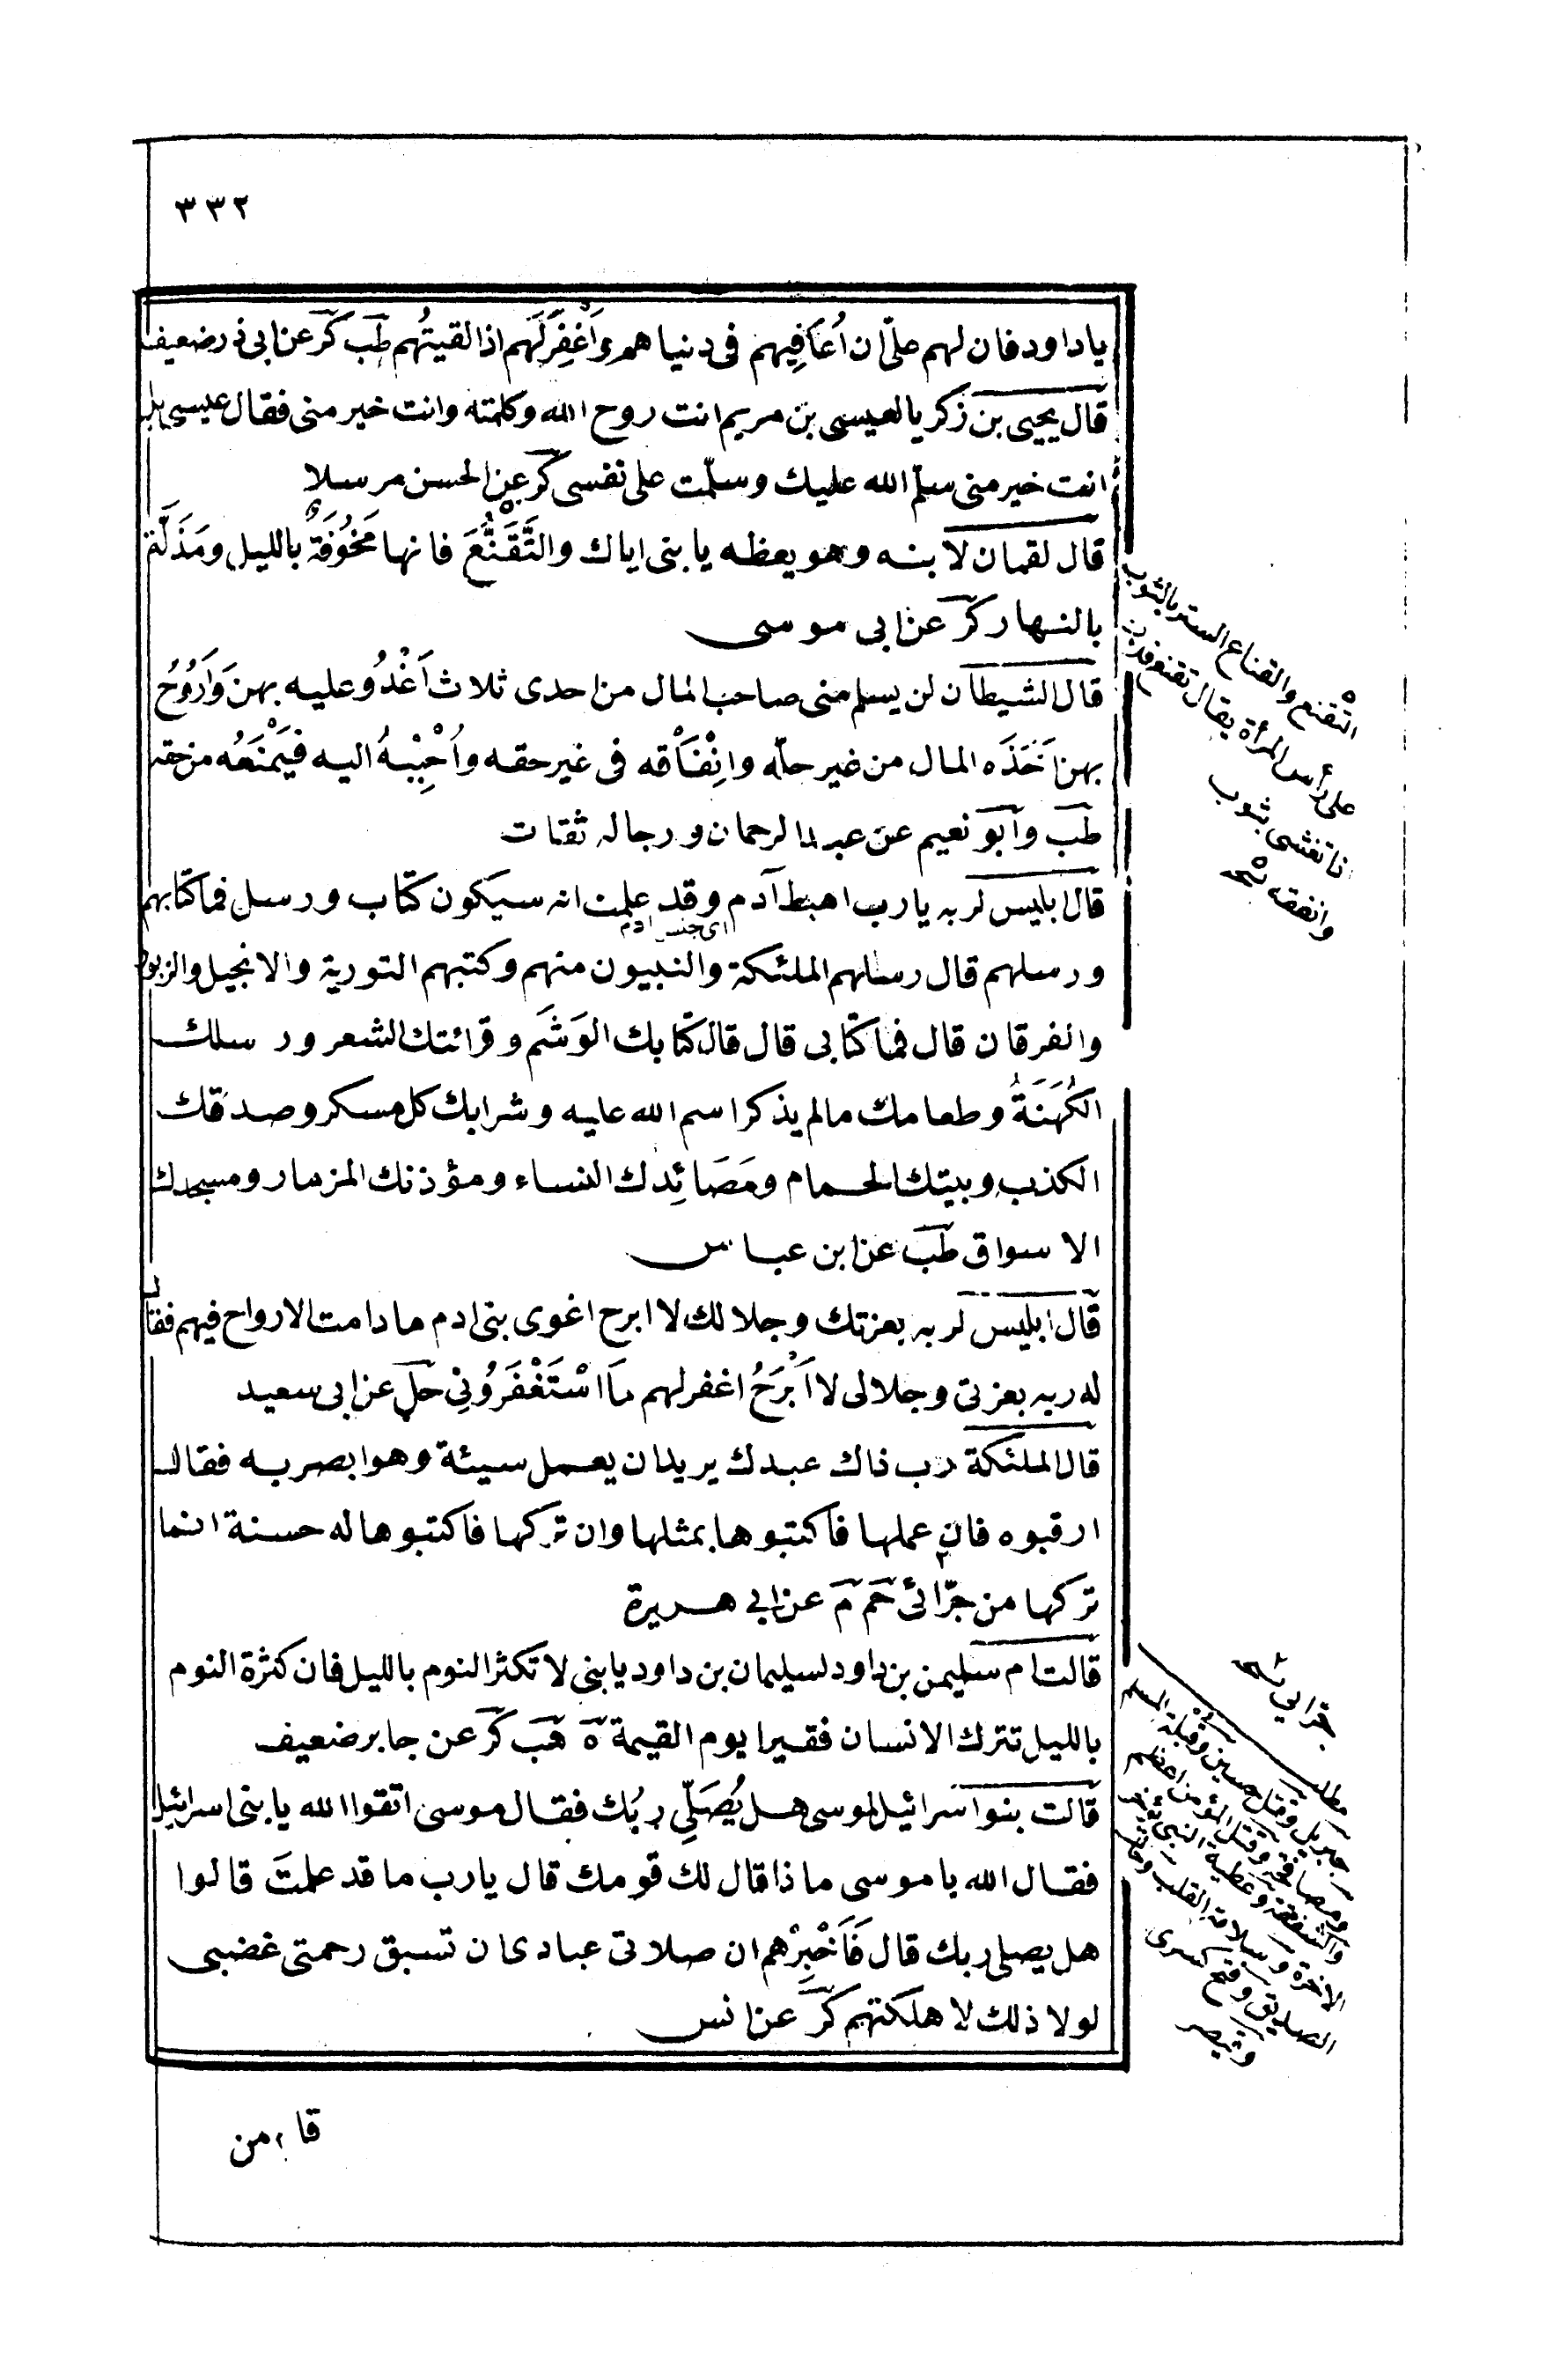 ٣٣٢
يا داود فان لهم علىّ ان اُعَافِيهم فى دنياهم وَاَغْفِرَ لَهم اذا لقيتُهم طب كر عن ابى ذر ضعيف
قال يحيى بن زكريا لعيسى بن مريم انت روح الله وكلمته وانت خير منى فقال عيسى بل
انت خير منى سلّم الله عليك وسلّمت على نفسى كر عن الحسن مرسلا
قال لقمان لابنه وهو يعظه يا بنى اياك والتَّقَنُّعَ فانها مَخُوفَةٌ بالليل ومَذَلَّة
بالنهار كر عن ابى موسى
قال الشيطان لن يسلم منى صاحب المال من احدى ثلاث اَغْدُو عليه بهن وَاَرُوحُ
بهن اَخْذَه المال من غير حلّه وانْفَاْقه فى غير حقه واُحْبِبْهُ اليه فيَمْنَعُه من حقه
طب وابو نعيم عن عبد الرحمان ورجاله ثقات
قال ابليس لربه يا رب اهبط آدم وقد علمت انه سيكون كتاب ورسل فما كتابهم
اى جنس ادم
ورسلهم قال رسلهم الملئكة والنبيون منهم وكتبهم التورية والانجيل والزبور
والفرقان قال فما كتابى قال قال كتابك الوَشَم وقرائتك الشعر ورسلك
الكُهَنَةُ وطعامك مالم يذكر اسم الله عليه وشرابك كل مسكر وصدقك
الكذب وبيتك الحمام ومَصَائِدك النساء ومؤذنك المزمار ومسجدك
الاسواق طب عن ابن عباس
قال ابليس لربه بعزتك وجلالك لا ابرح اغوى بنى ادم ما دامت الارواح فيهم فقال
له ربه بعزتى وجلالى لا اَبْرَحُ اغفر لهم مَا اسْتَغْفَرُونِى حل عن ابى سعيد
قال الملئكة رب ذاك عبدك يريد ان يعمل سيئة وهو ابصر به فقال
ارقبوه فان عملها فاكتبوها بمثلها وان تركها فاكتبوها له حسنة انما
تركها من جرّائى حم م عن ابى هريرة
قالت ام سليمن بن داود لسليمان بن داود يا بنى لا تكثر النوم بالليل فان كثرة النوم
بالليل تترك الانسان فقيرا يوم القيمة ه هب كر عن جابر ضعيف
قالت بنوا اسرائيل لموسى هل يُصَلِّى ربُك فقال موسى اتقوا الله يا بنى اسرائيل
فقال الله يا موسى ماذا قال لك قومك قال يا رب ما قد علمتَ قالوا
هل يصلى ربك قال فَاَخْبِرْهم ان صلاتى عبادى ان تسبق رحمتى غضبى
لولا ذلك لاهلكتهم كر عن انس
التقنع والقناع الستر بالثوب
على رأس المرأة يقال تقنع
تغشى بثوب
وانفقه نسخه
جرّايى نسخه
مطلب
جبريل وقتل حسين وقبلة المسلم
ومصافحته وقتل المؤمن اعظم
والشفقة وعطية النبى
الآخرة وسلامة القلب
الصديق وفتح كسرى
وقيصر
قا من